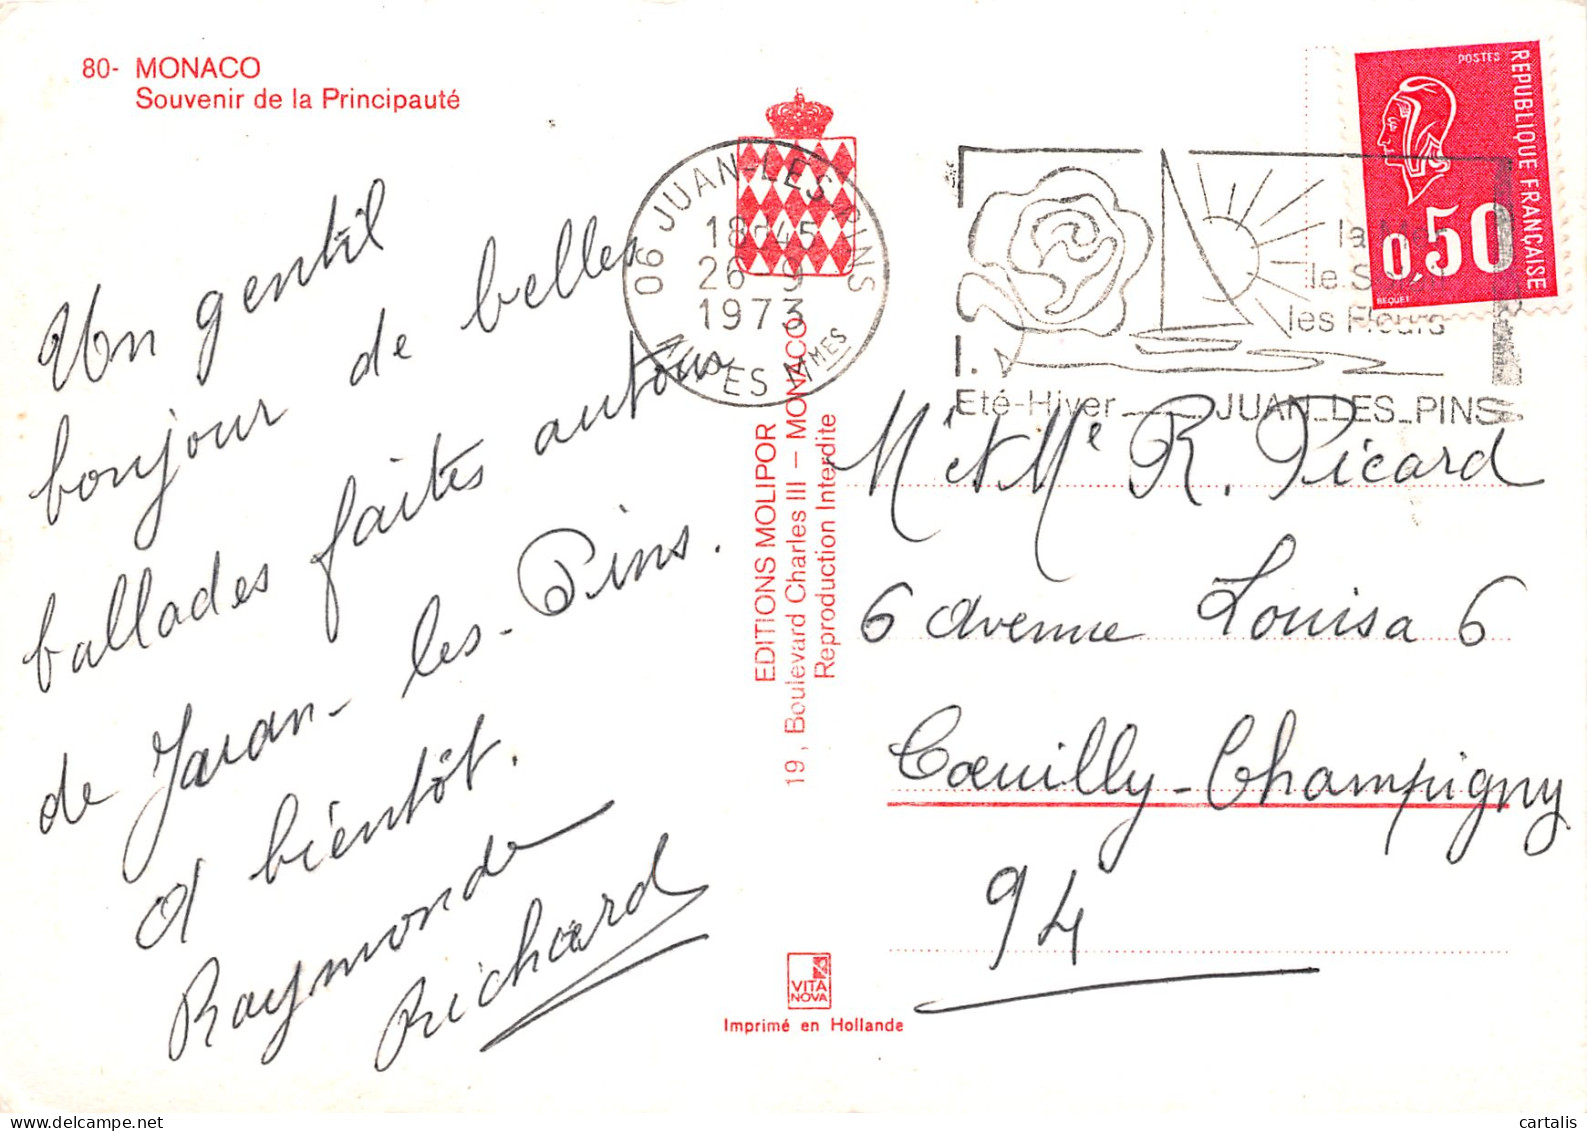 80- MONACO
Souvenir de la Principauté
Un gentil
bonjour de belles
ballades faites autour
de Juan-les-Pins.
A bientôt.
Raymonde
Richard
06 JUAN-LES-PINS
18H45
26-9
1973
ALPES Mmes
la Mer
le Soleil
les Fleurs
Eté-Hiver JUAN_LES_PINS
POSTES
REPUBLIQUE FRANÇAISE
0,50
BEQUET
EDITIONS MOLIPOR
19, Boulevard Charles III – MONACO
Reproduction Interdite
Mr et Me R. Picard
6 avenue Louisa 6
Coeuilly-Champigny
94
VITA
NOVA
Imprimé en Hollande
cartalis